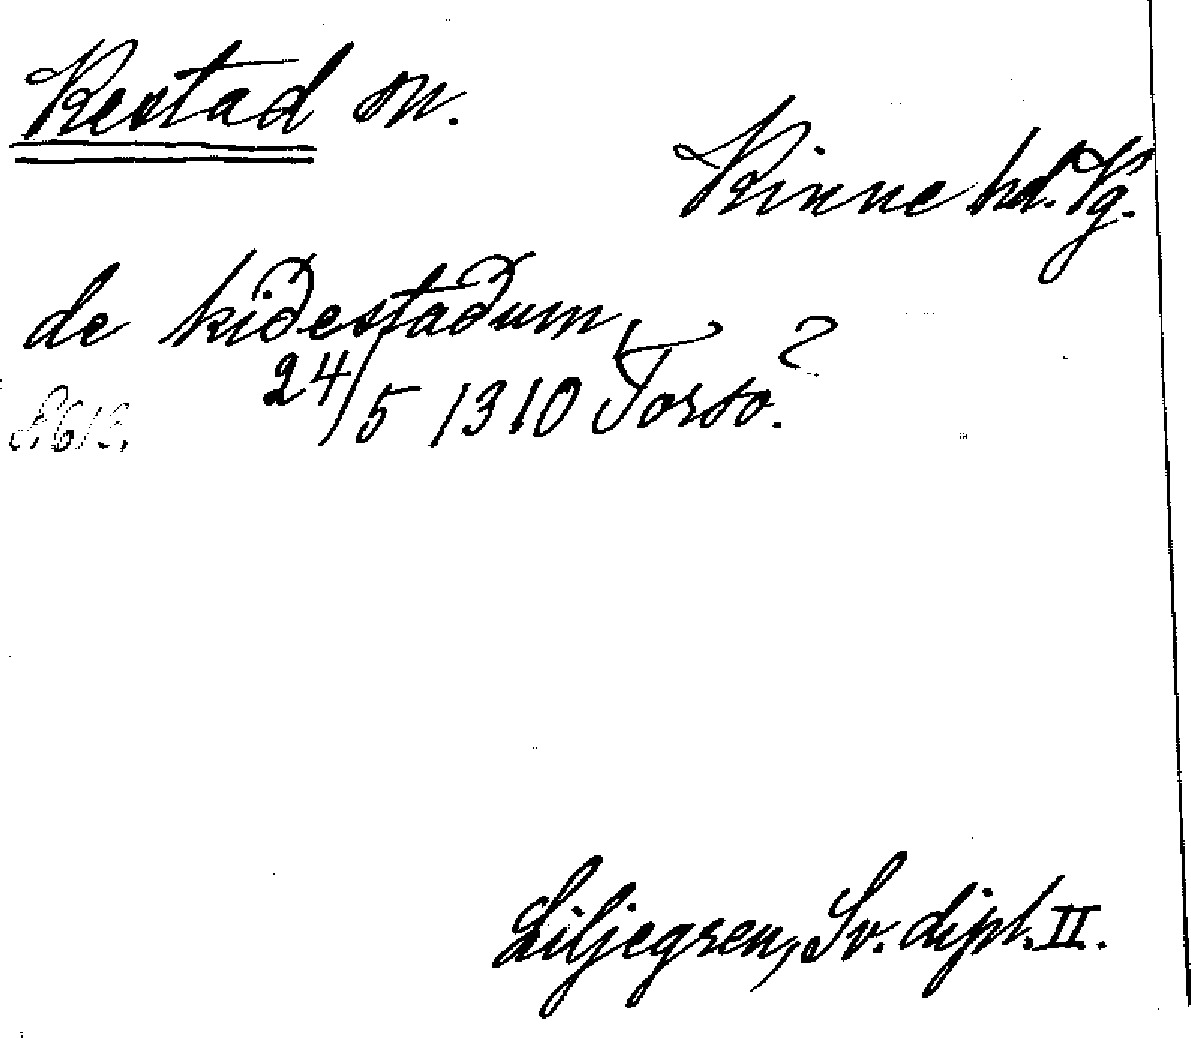 Kestad sn.
Kinne hd. Vg.
de kiðestaðum ?
24/5 1310 Torso.
Liljegren, Sv. dipl. II.